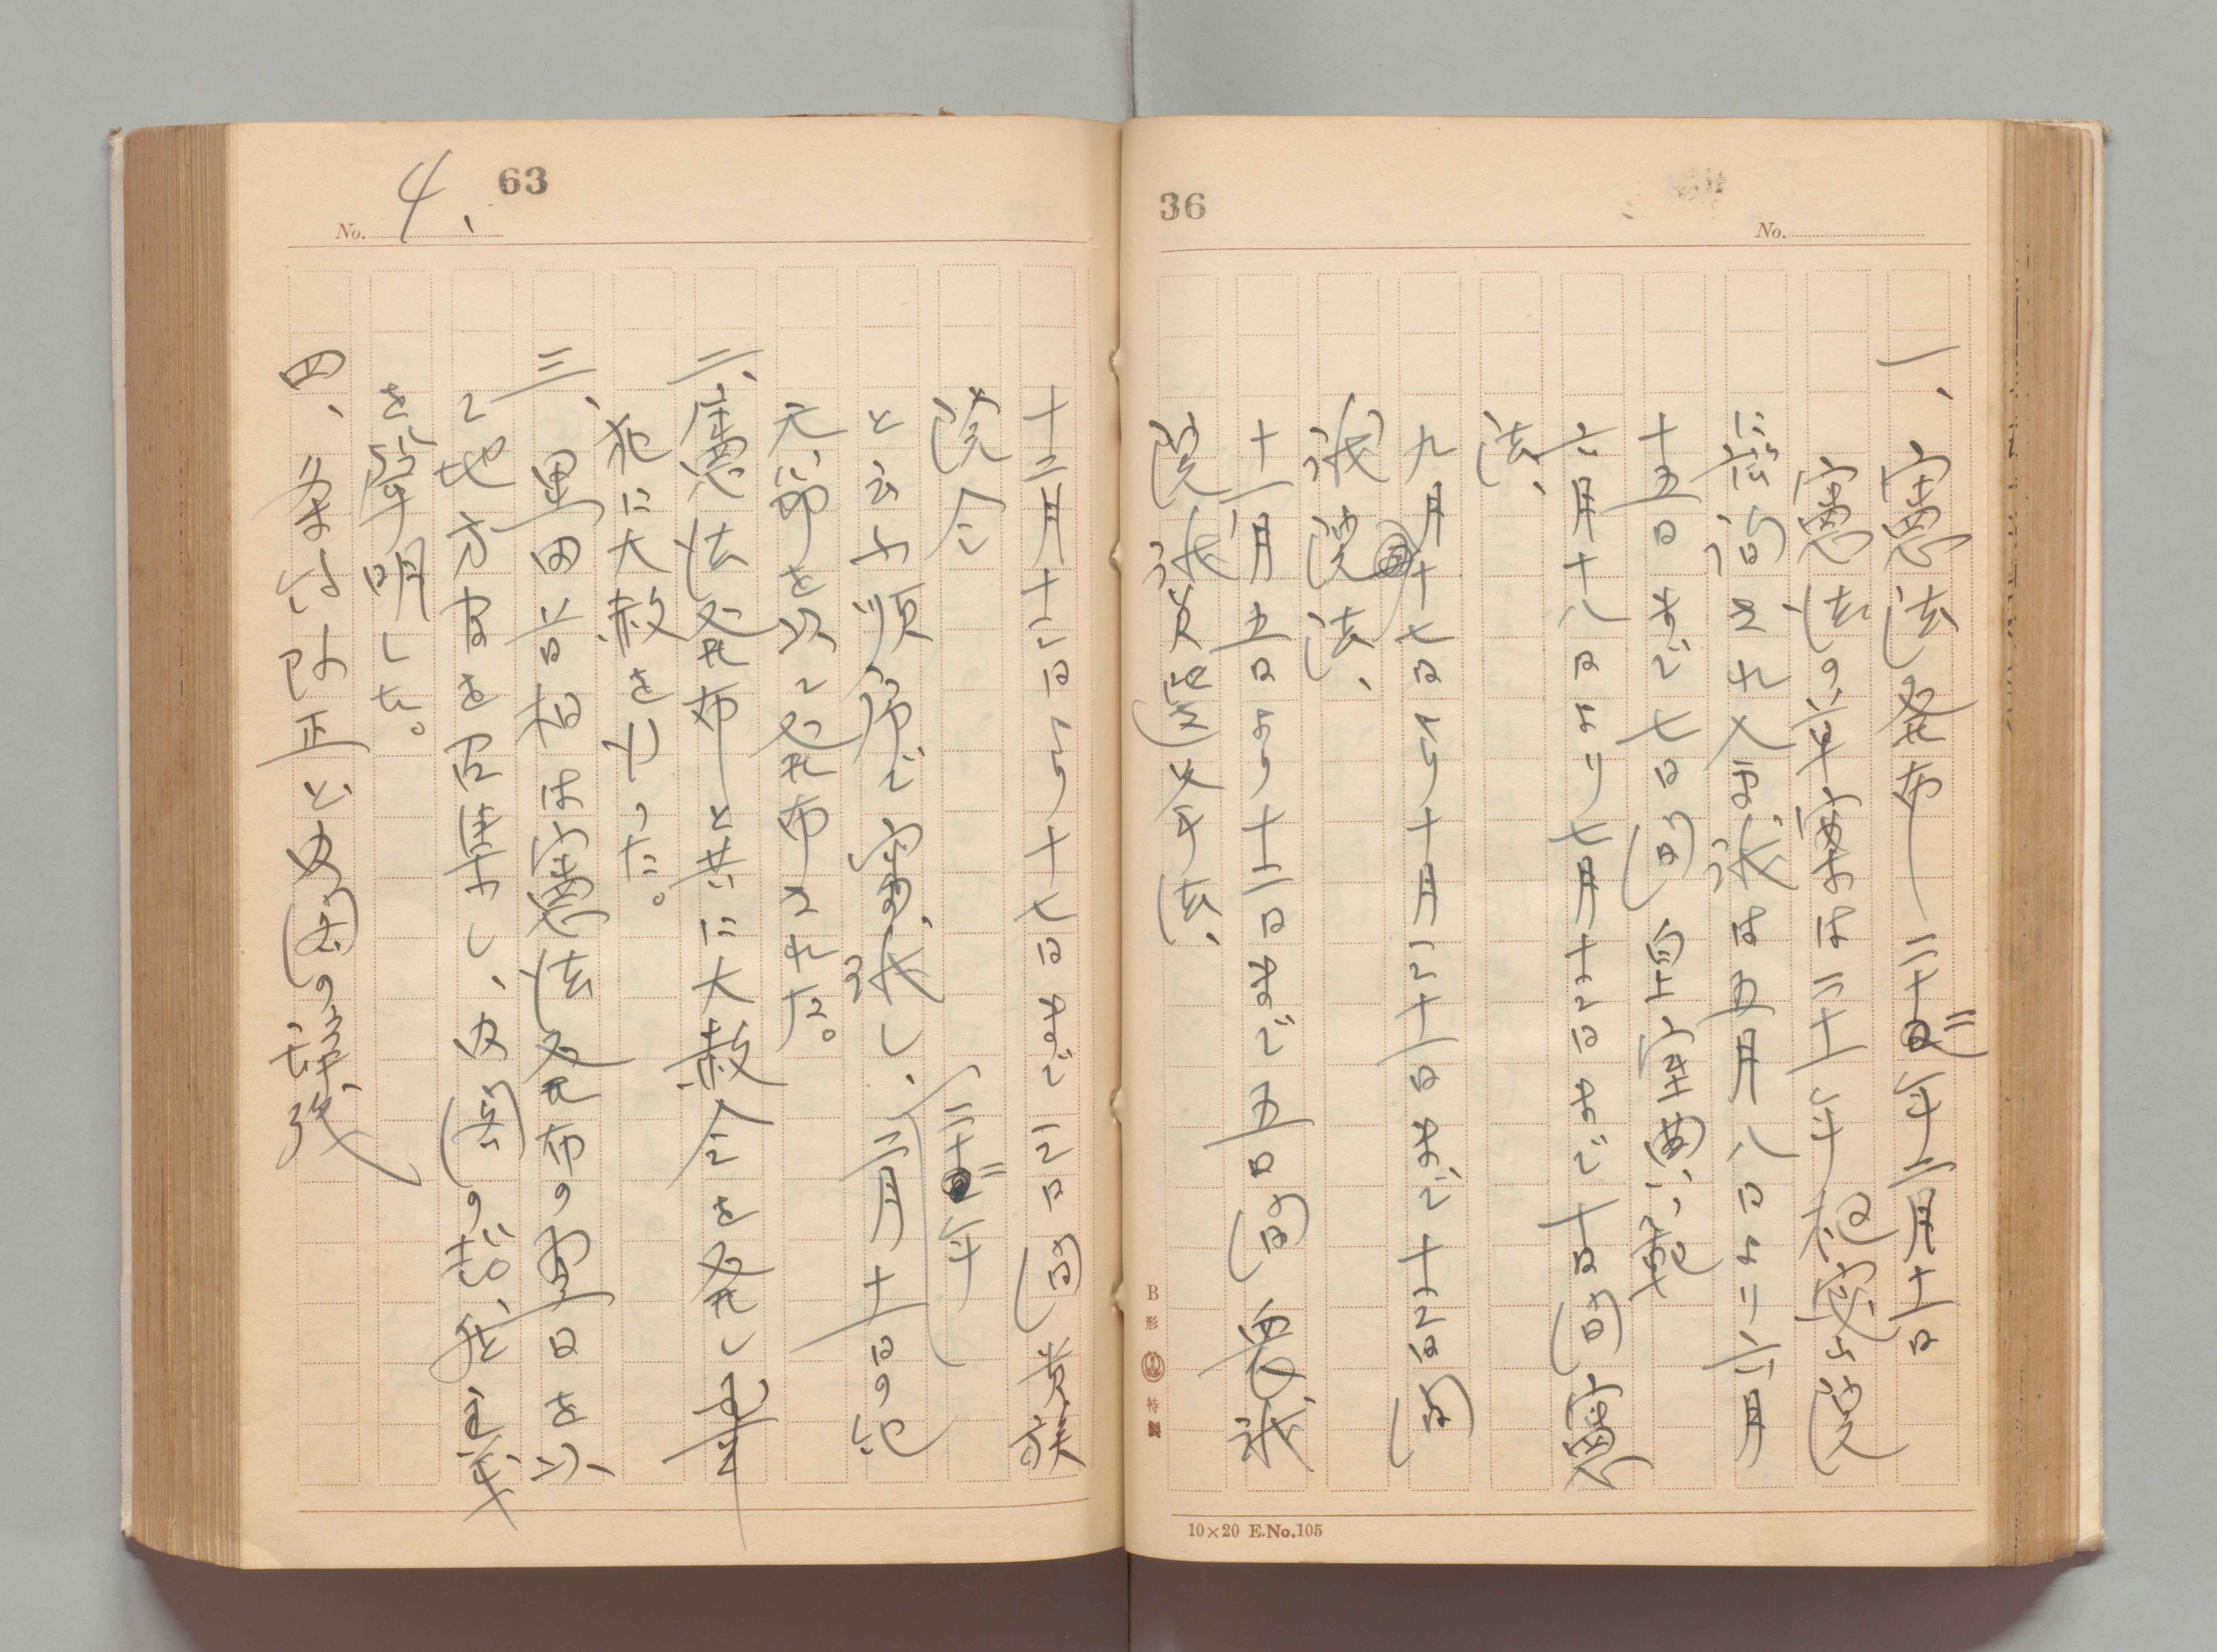 36
No.
一、憲法発布―二十二年二月十一日
憲法の草案は二十一年枢密院
に諮詢され会議は五月八日より六月
十五日まで七日間皇室典範
六月十八日より七月十三日まで十日間憲
法、
九月十七日より十月三十一日まで十三日間
議院法、
十二月五日より十三日まで五日間衆議
院議員選挙法、
B形 特製
10×20 E.No.105
63
No. 4、
十二月十二日より十七日まで三日間貴族
院令
と云ふ順序で審議し、(二十二年)二月十一日の紀
元節を以て発布された。
二、憲法発布と共に大赦令を発し国事
犯に大赦を行った。
三、黒田首相は憲法発布の翌日を以
て地方官を召集し、内閣の超然主義
を聲明した。
四、条約改正と内閣の辞職